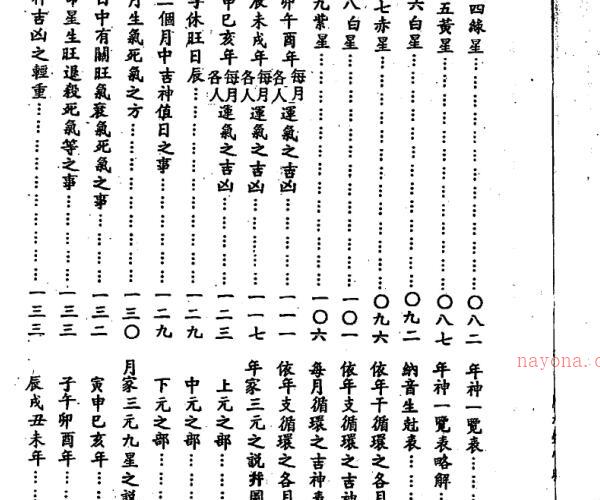 四綠星……〇八二
五黃星……〇八七
六白星……〇九二
七赤星……〇九六
八白星……一〇一
九紫星……一〇六
卯午酉年每月各人運氣之吉凶……一一一
辰未戌年每月各人運氣之吉凶……一一七
申巳亥年每月各人運氣之吉凶……一二三
休旺日辰……一二九
個月中吉神值日之事……一二九
月生氣死氣之方……一三〇
日中有關旺氣衰氣死氣之事……一三二
星生旺退殺死氣等之事……一三三
吉凶之輕重……一三三
年神一覽表……
年神一覽表略解……
納音生尅表……
依年干循環之各月
依年支循環之吉神
依年支循環之各月
每月循環之吉神表
年家三元之說幷圖
上元之部……
中元之部……
下元之部……
月家三元九星之說
寅申巳亥年……
子午卯酉年……
辰戌丑未年……
nayona.c